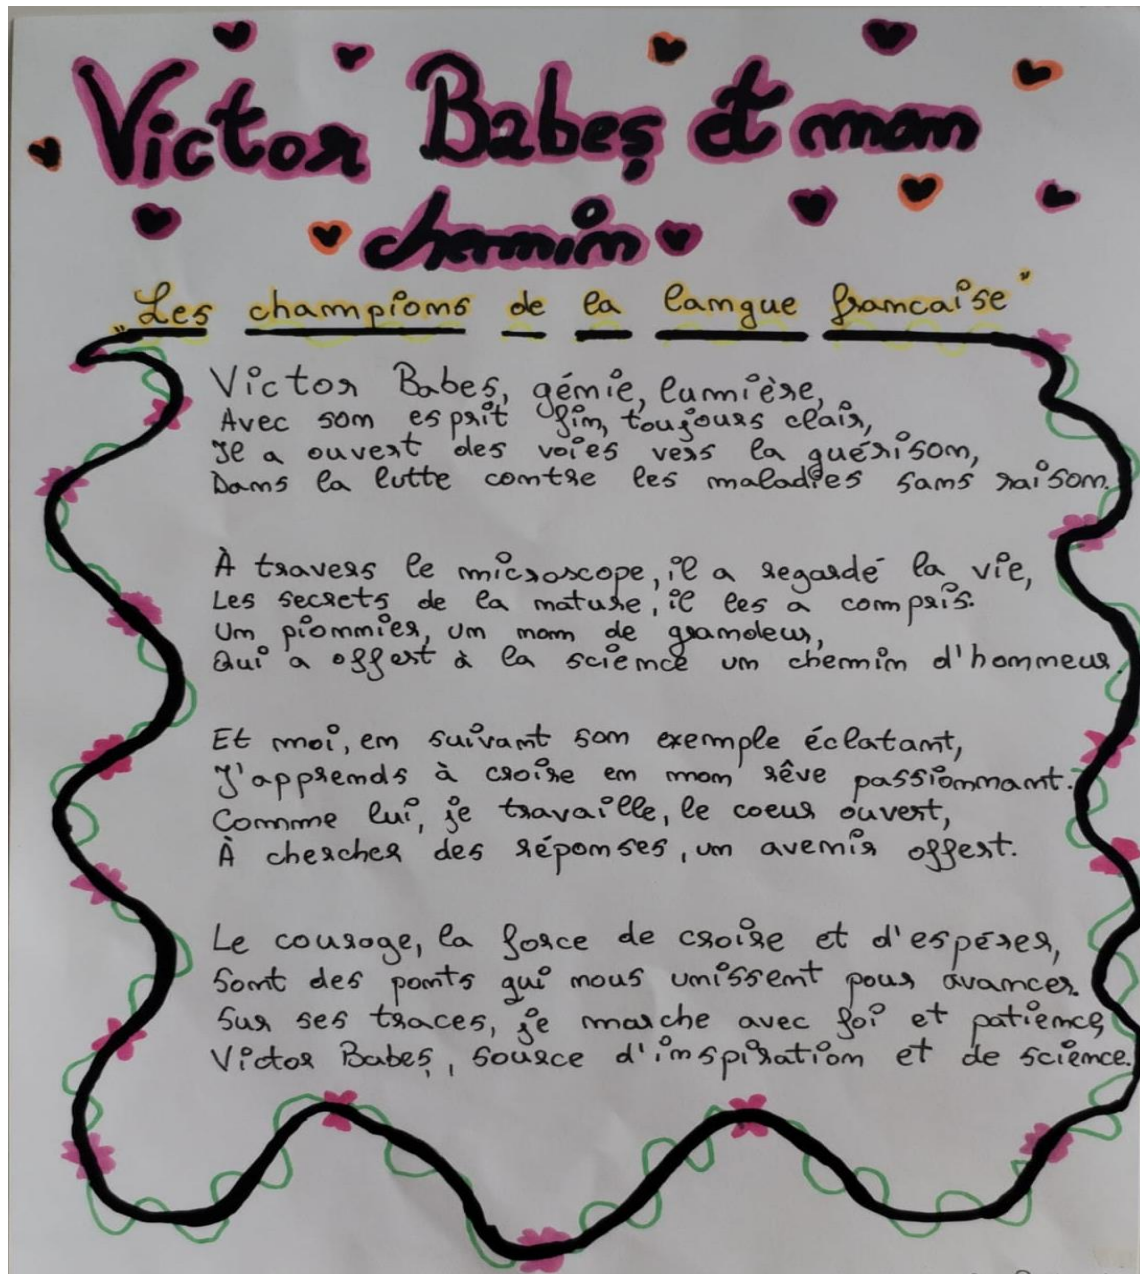 Victor Babeș et mon
chemin
„Les champions de la langue francaise"
Victor Babeș, génie, lumière,
Avec son esprit fin, toujours clair,
Il a ouvert des voies vers la guérison,
Dans la lutte contre les maladies sans raison.
À travers le microscope, il a regardé la vie,
Les secrets de la nature, il les a compris.
Un pionnier, un nom de grandeur,
Qui a offert à la science un chemin d'honneur.
Et moi, en suivant son exemple éclatant,
J'apprends à croire en mon rêve passionnant.
Comme lui, je travaille, le coeur ouvert,
À chercher des réponses, un avenir offert.
Le courage, la force de croire et d'espérer,
Sont des ponts qui nous unissent pour avancer.
Sur ses traces, je marche avec foi et patience,
Victor Babeș, source d'inspiration et de science.